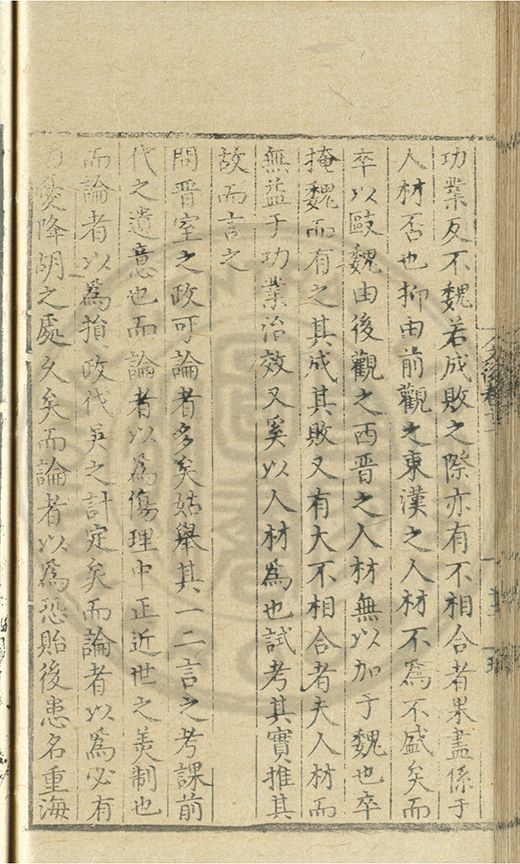 功業反不魏若成敗之際亦有不相合者果盡係于
人材否也抑由前觀之東漢之人材不爲不盛矣而
卒以歐魏由後觀之西晋之人材無以加于魏也卒
掩魏而有之其成其敗又有大不相合者夫人材而
無益于功業治效又奚以人材爲也試考其實推其
故而言之
問晋室之政可論者多矣姑舉其一二言之考課前
代之遺意也而論者以爲傷理中正近世之美制也
而論者以爲損政伐吳之計定矣而論者以爲必有
憂降胡之處久矣而論者以爲恐貽後患名重海